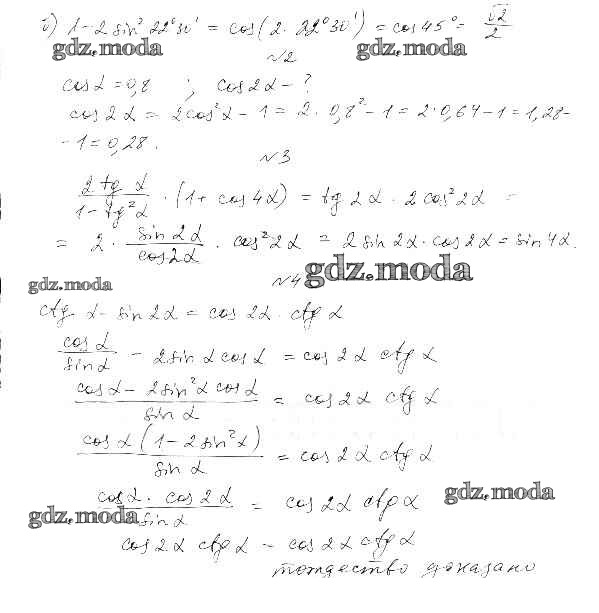 б) 1-2 sin² 22°30' = cos(2·22°30') = cos 45° = √2/2
gdz.moda gdz.moda
№2
cos α = 0,8 ; cos 2α - ?
cos 2α = 2cos²α - 1 = 2·0,8² - 1 = 2·0,64 - 1 = 1,28 -
- 1 = 0,28.
№3
2 tg α / 1 - tg²α · (1 + cos 4α) = tg 2α · 2 cos² 2α =
= 2 · sin 2α / cos 2α · cos² 2α = 2 sin 2α · cos 2α = sin 4α.
gdz.moda №4 gdz.moda
ctg α - sin 2α = cos 2α · ctg α
cos α / sin α - 2 sin α cos α = cos 2α ctg α
cos α - 2 sin²α cos α / sin α = cos 2α ctg α
cos α (1 - 2 sin²α) / sin α = cos 2α ctg α
cos α · cos 2α / sin α = cos 2α ctg α
gdz.moda gdz.moda
cos 2α ctg α - cos 2α ctg α
тождество доказано